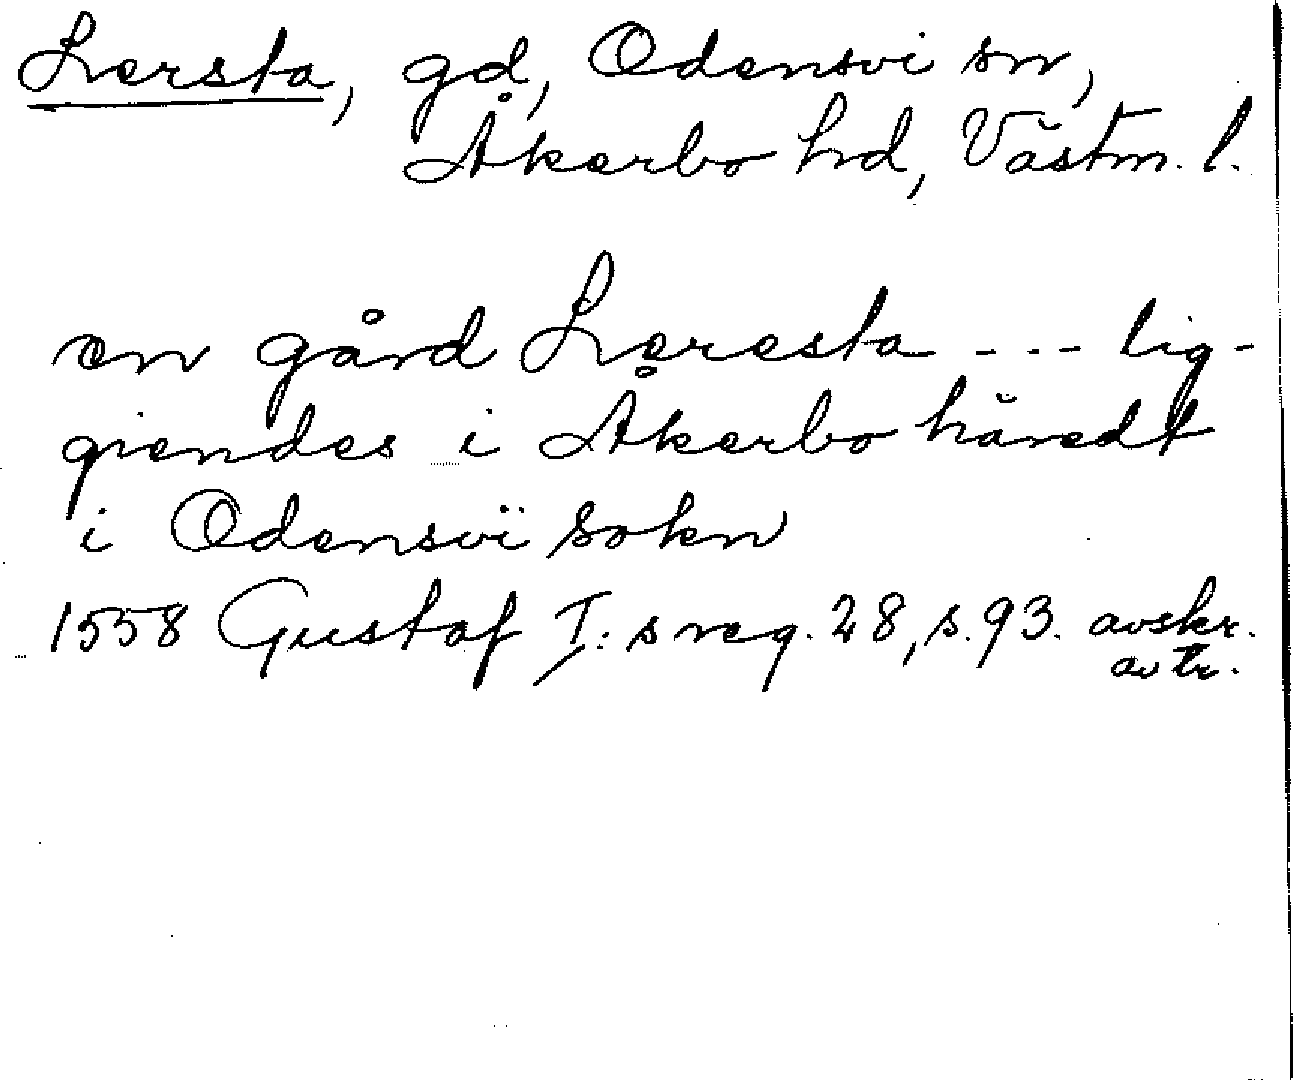 Lersta, gd, Odensvi sn,
Åkerbo hd, Västm. l.
en gård Leresta - - - lig-
giendes i Åkerbo häredt
i Odensvi sokn
1558 Gustaf I:s reg. 28, s. 93. avskr.
av tr.